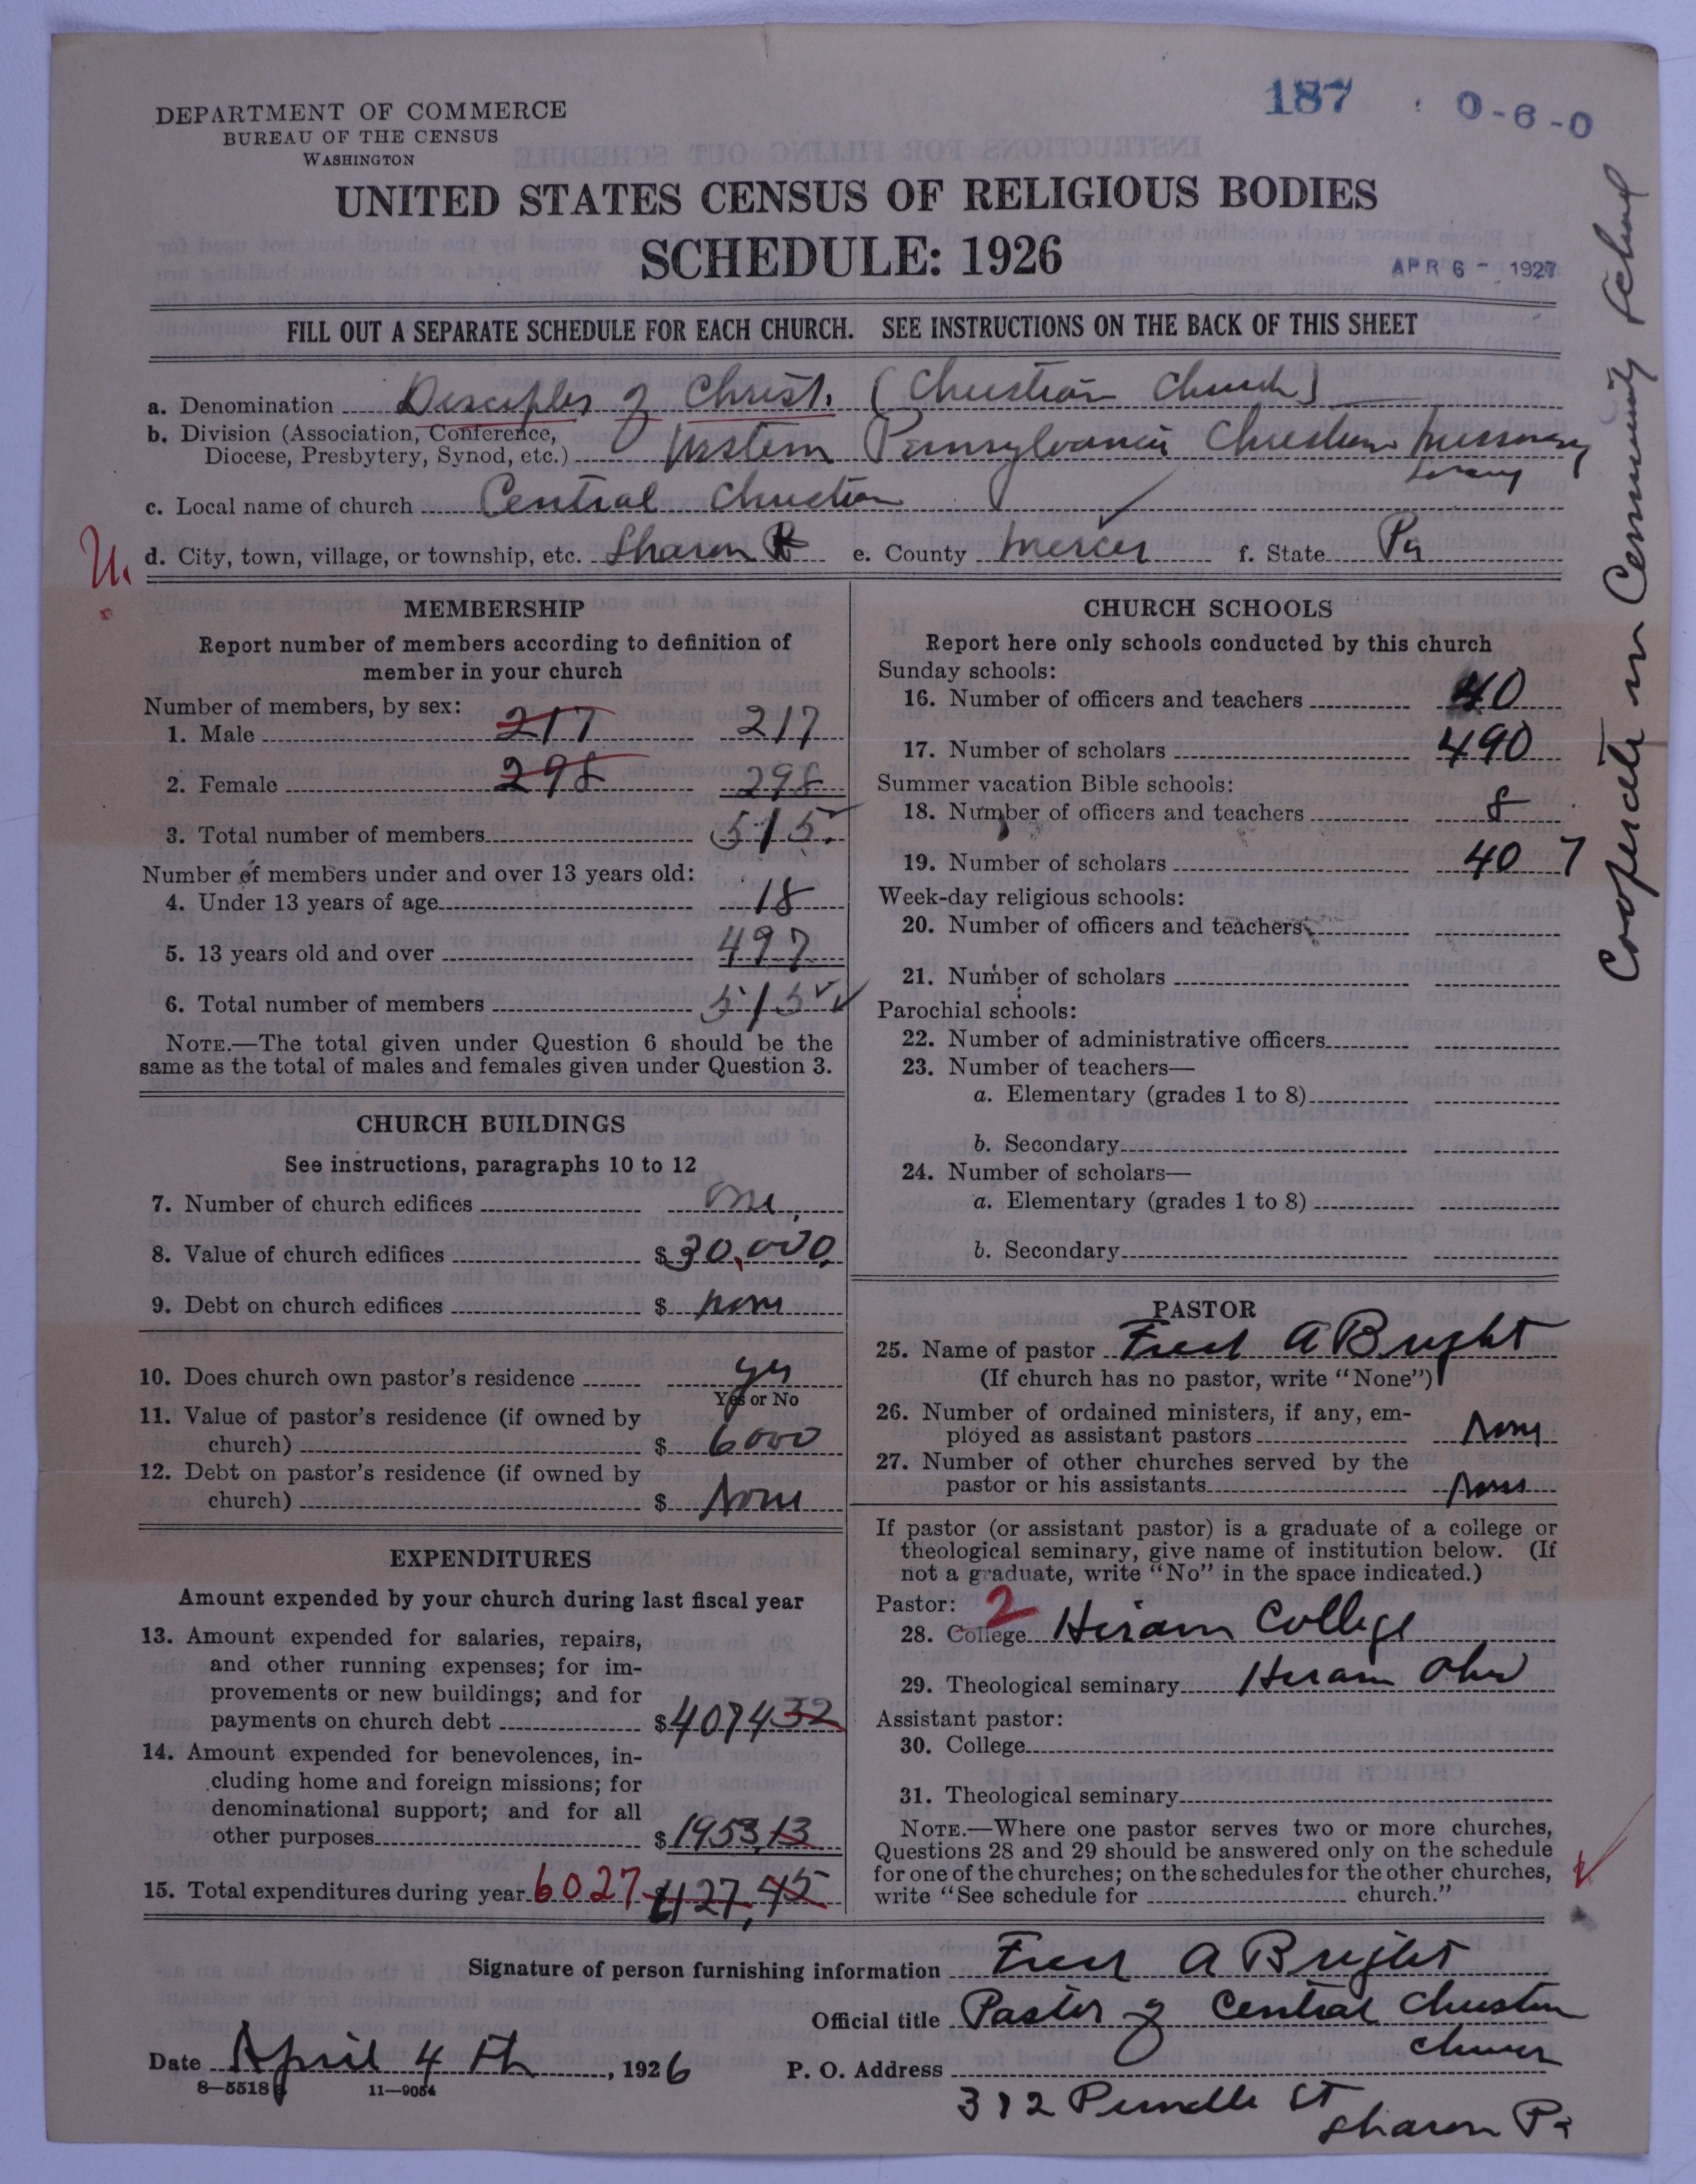 187 0-6-0
DEPARTMENT OF COMMERCE
BUREAU OF THE CENSUS
WASHINGTON
UNITED STATES CENSUS OF RELIGIOUS BODIES
SCHEDULE: 1926
APR 6 - 1927
FILL OUT A SEPARATE SCHEDULE FOR EACH CHURCH. SEE INSTRUCTIONS ON THE BACK OF THIS SHEET
a. Denomination Disciples of Christ. (Christian Church)
b. Division (Association, Conference,
Diocese, Presbytery, Synod, etc.) Western Pennsylvania Christian Missionary
c. Local name of church Central Christian
U. d. City, town, village, or township, etc. Sharon e. County Mercer f. State Pa
Cooperate in Community School
MEMBERSHIP
Report number of members according to definition of
member in your church
Number of members, by sex:
1. Male 217 217
2. Female 298 298
3. Total number of members 515
Number of members under and over 13 years old:
4. Under 13 years of age 18
5. 13 years old and over 497
6. Total number of members 515
NOTE.—The total given under Question 6 should be the
same as the total of males and females given under Question 3.
CHURCH BUILDINGS
See instructions, paragraphs 10 to 12
7. Number of church edifices one
8. Value of church edifices $30,000
9. Debt on church edifices $ none
10. Does church own pastor's residence yes
Yes or No
11. Value of pastor's residence (if owned by
church) $ 6000
12. Debt on pastor's residence (if owned by
church) $ None
EXPENDITURES
Amount expended by your church during last fiscal year
13. Amount expended for salaries, repairs,
and other running expenses; for im-
provements or new buildings; and for
payments on church debt $407432
14. Amount expended for benevolences, in-
cluding home and foreign missions; for
denominational support; and for all
other purposes $1953,13
15. Total expenditures during year 6027
CHURCH SCHOOLS
Report here only schools conducted by this church
Sunday schools:
16. Number of officers and teachers 40
17. Number of scholars 490
Summer vacation Bible schools:
18. Number of officers and teachers 8
19. Number of scholars 407
Week-day religious schools:
20. Number of officers and teachers
21. Number of scholars
Parochial schools:
22. Number of administrative officers
23. Number of teachers—
a. Elementary (grades 1 to 8)
b. Secondary
24. Number of scholars—
a. Elementary (grades 1 to 8)
b. Secondary
PASTOR
25. Name of pastor Fred A Bright
(If church has no pastor, write "None")
26. Number of ordained ministers, if any, em-
ployed as assistant pastors None
27. Number of other churches served by the
pastor or his assistants None
If pastor (or assistant pastor) is a graduate of a college or
theological seminary, give name of institution below. (If
not a graduate, write "No" in the space indicated.)
Pastor: 2
28. College Hiram College
29. Theological seminary Hiram Ohio
Assistant pastor:
30. College
31. Theological seminary
NOTE.—Where one pastor serves two or more churches,
Questions 28 and 29 should be answered only on the schedule
for one of the churches; on the schedules for the other churches,
write "See schedule for church."
Signature of person furnishing information Fred A Bright
Official title Pastor of Central Christian
Church
Date April 4th, 1926 P. O. Address
8-5518 11-9054
312 St
Sharon Pa